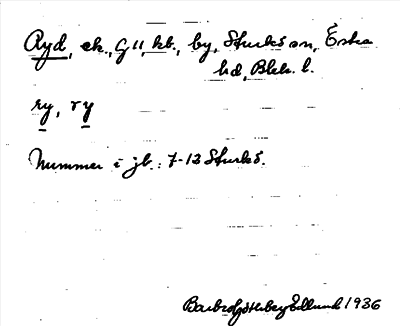 Ryd, ek., G11, kb., by, Sturkö sn, Östra
hd, Blek. l.
ry, ry
Nummer i jb.: 7-13 Sturkö.
Barbro Götherberg Edlund 1936